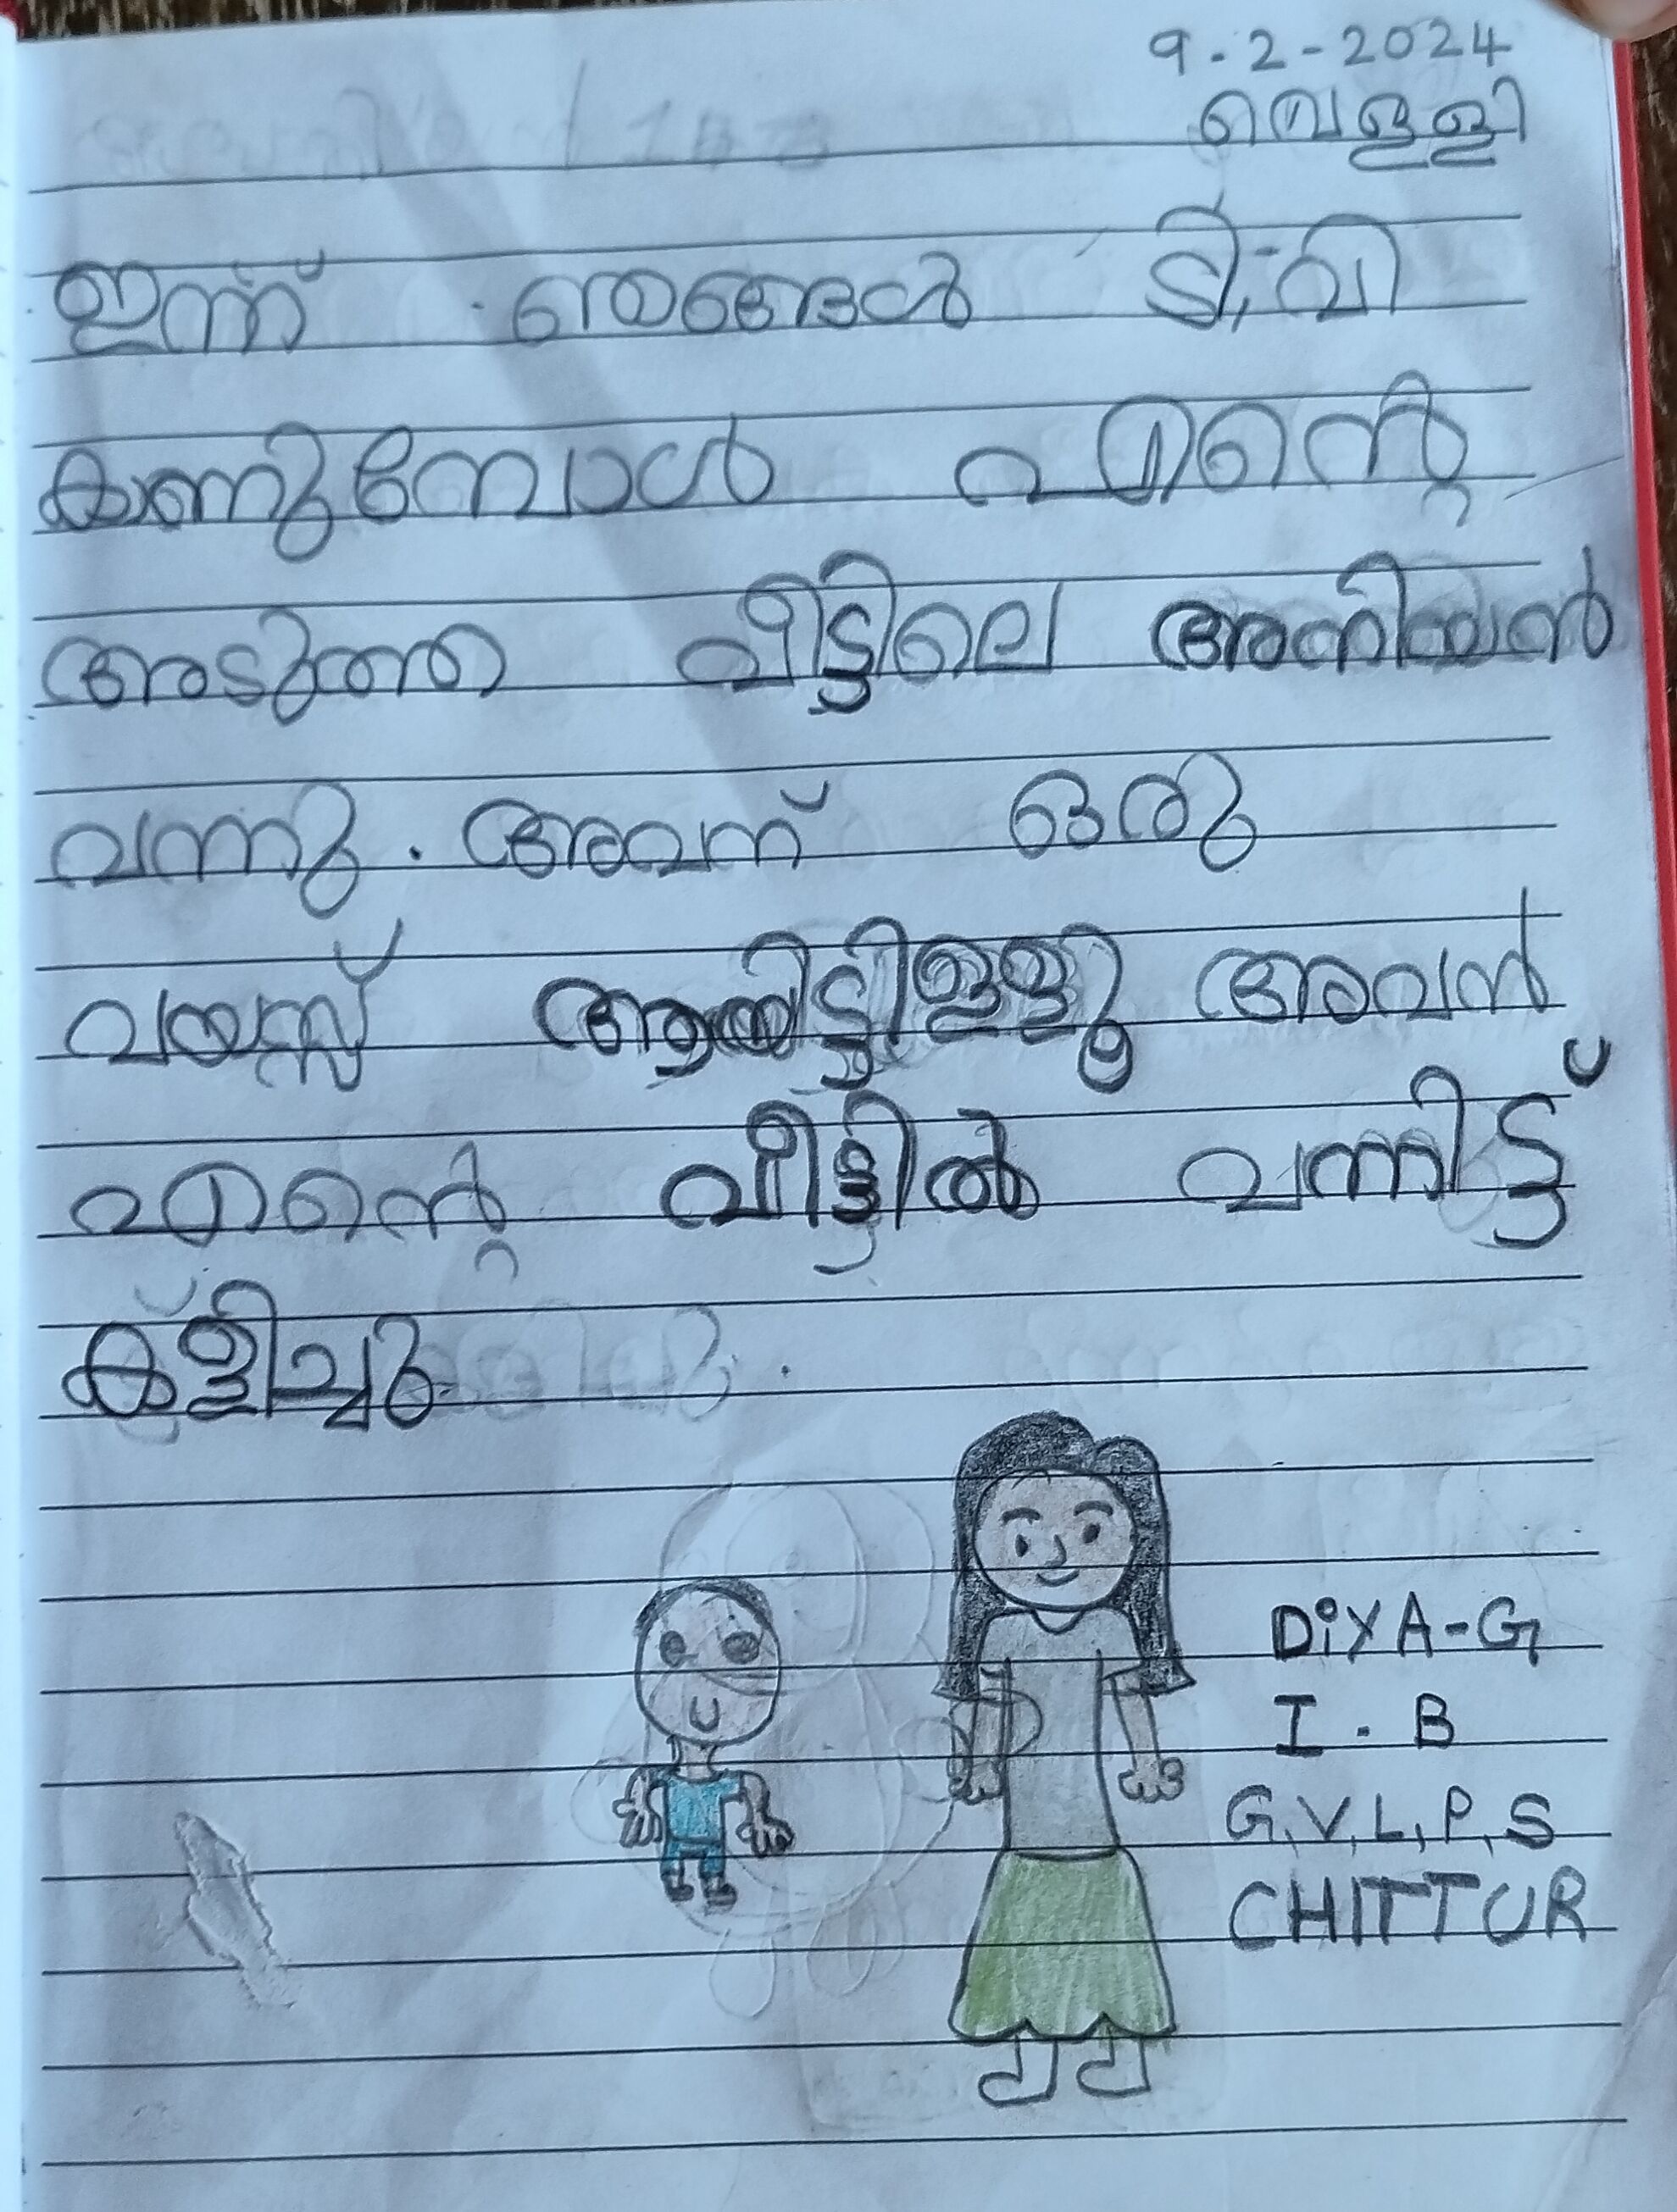 9-2-2024
വെള്ളി
ഇന്ന് ഞങ്ങൾ ടി.വി
കണ്ണുമ്പോൾ എന്റെ
അടുത്ത വീട്ടിലെ അനിയൻ
വന്നു. അവന് ഒരു
വയസ്സ് ആയിട്ടുള്ളൂ അവൻ
എന്റെ വീട്ടിൽ വന്നിട്ട്
കളിച്ചു.
DiYA-G
I.B
G.V.L.P.S
CHITTUR